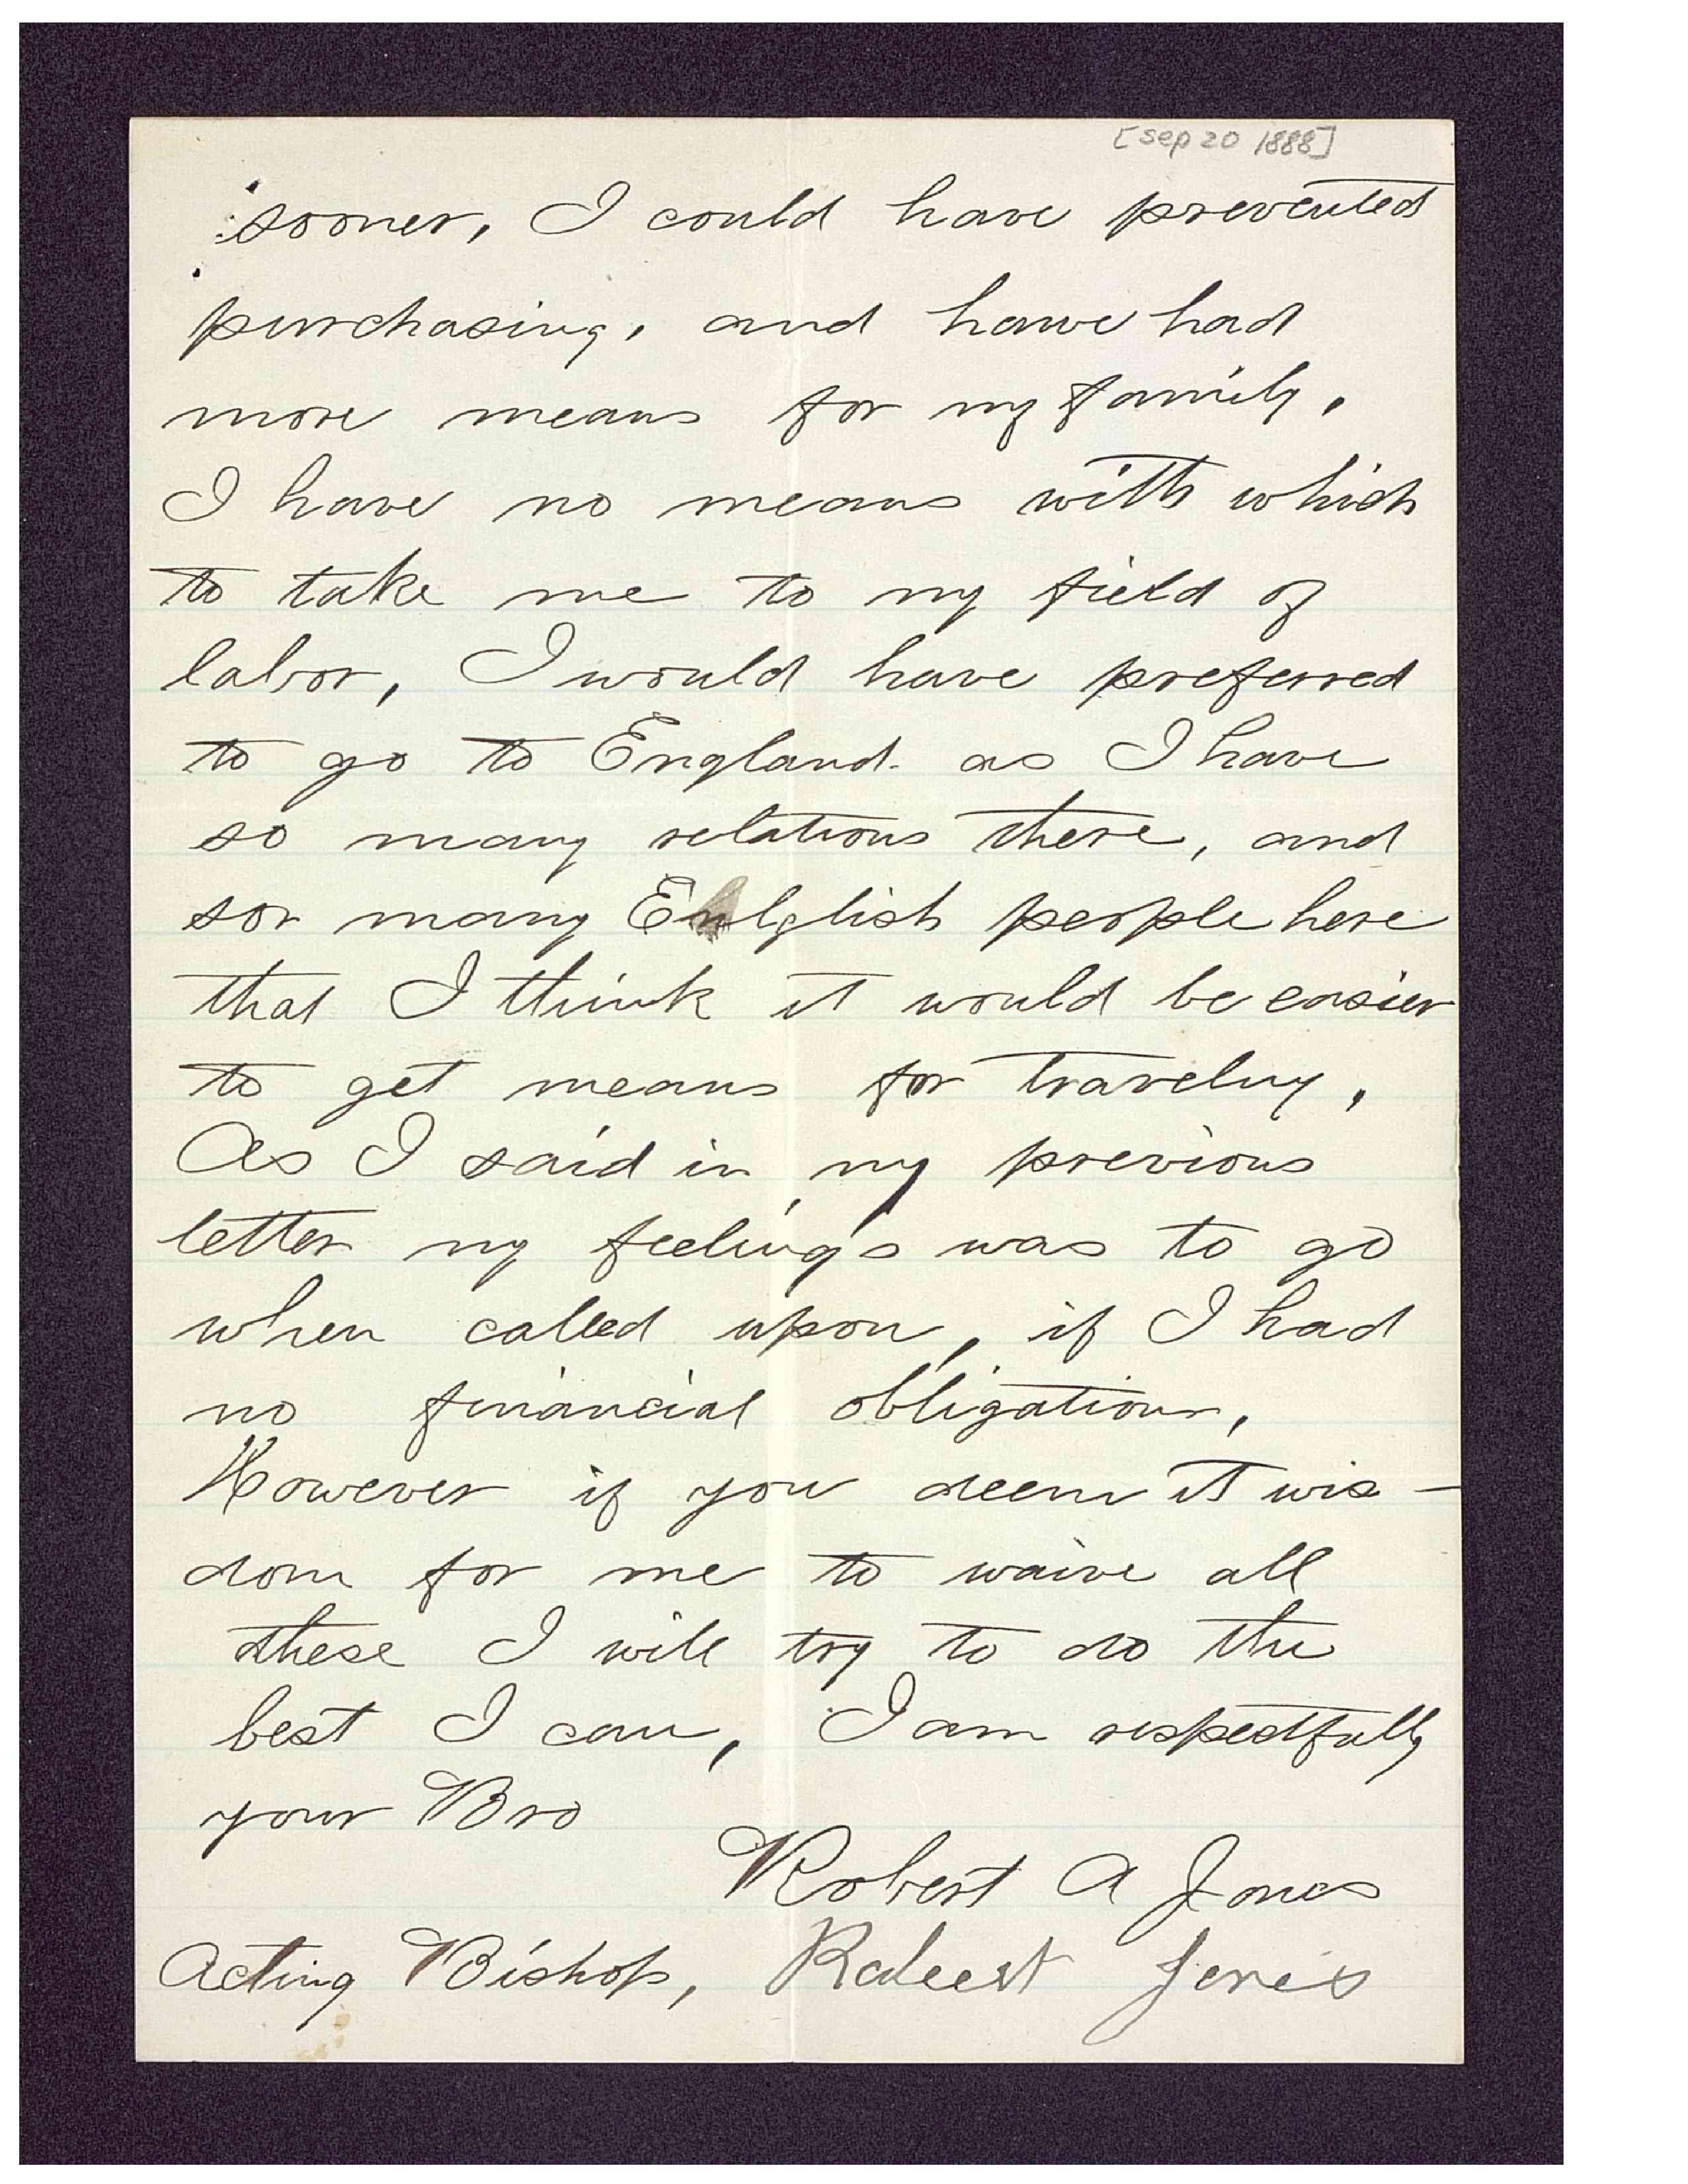 [Sep 20 1888]
sooner, I could have prevented
purchasing, and have had
more means for my family,
I have no means with which
to take me to my field of
labor, I would have preferred
to go to England. as I have
so many relations there, and
sor many Enlglish people here
that I think it would be easier
to get means for traveling,
As I said in my previous
letter my feelings was to go
when called upon, if I had
no financial obligations,
However if you deem it wis-
dom for me to waive all
these I will try to do the
best I can, I am respectfully
your Bro
Robert A Jones
Acting Bishop, Robert Jones